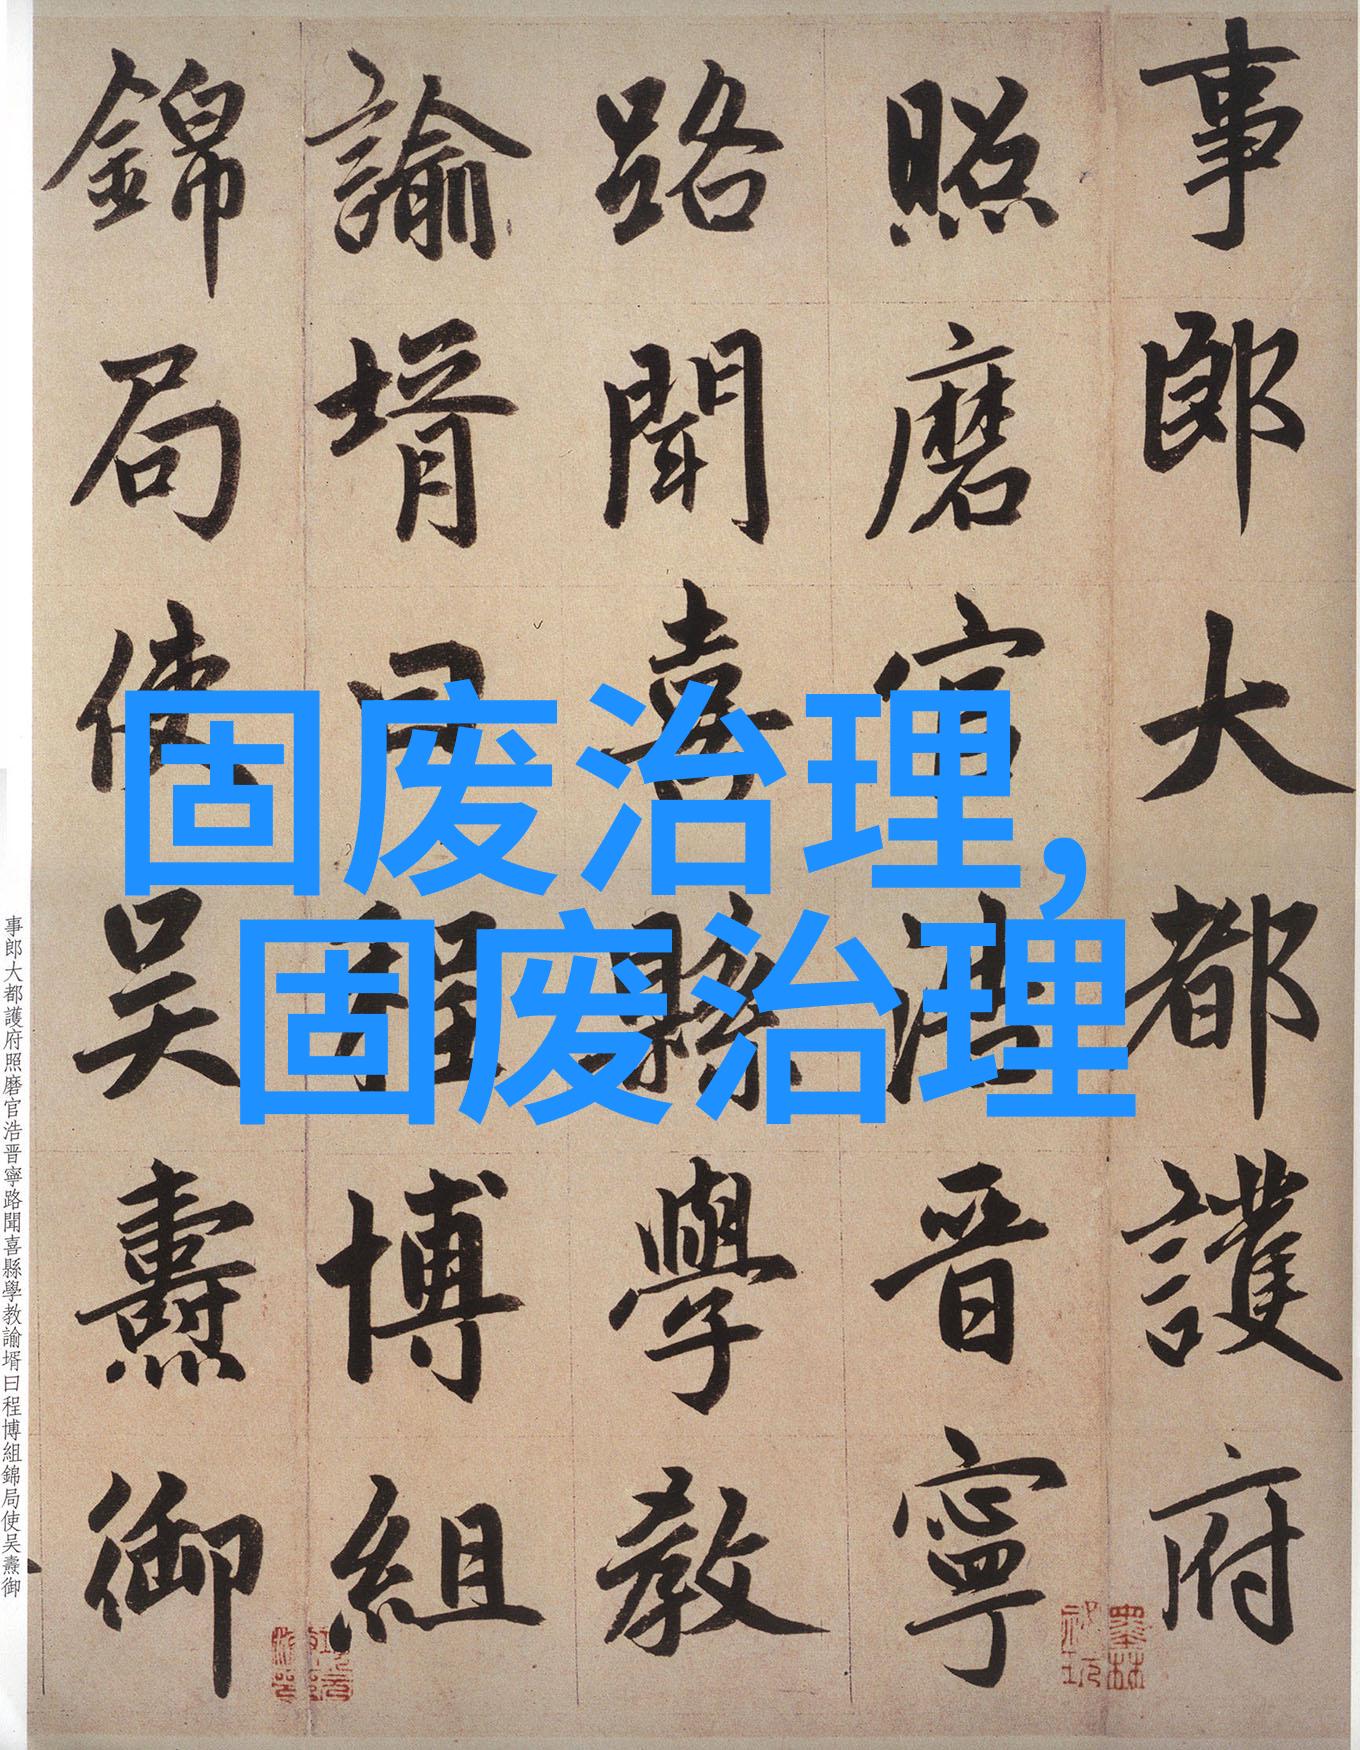 事郎大都護府
照磨官浩晋寧
路聞喜縣學教
諭壻曰程博組
錦局使吴燾御
固废治理,
固废治理
事郎大都護府照磨官浩晋寧路聞喜縣學教諭壻曰程博組錦局使吴燾御